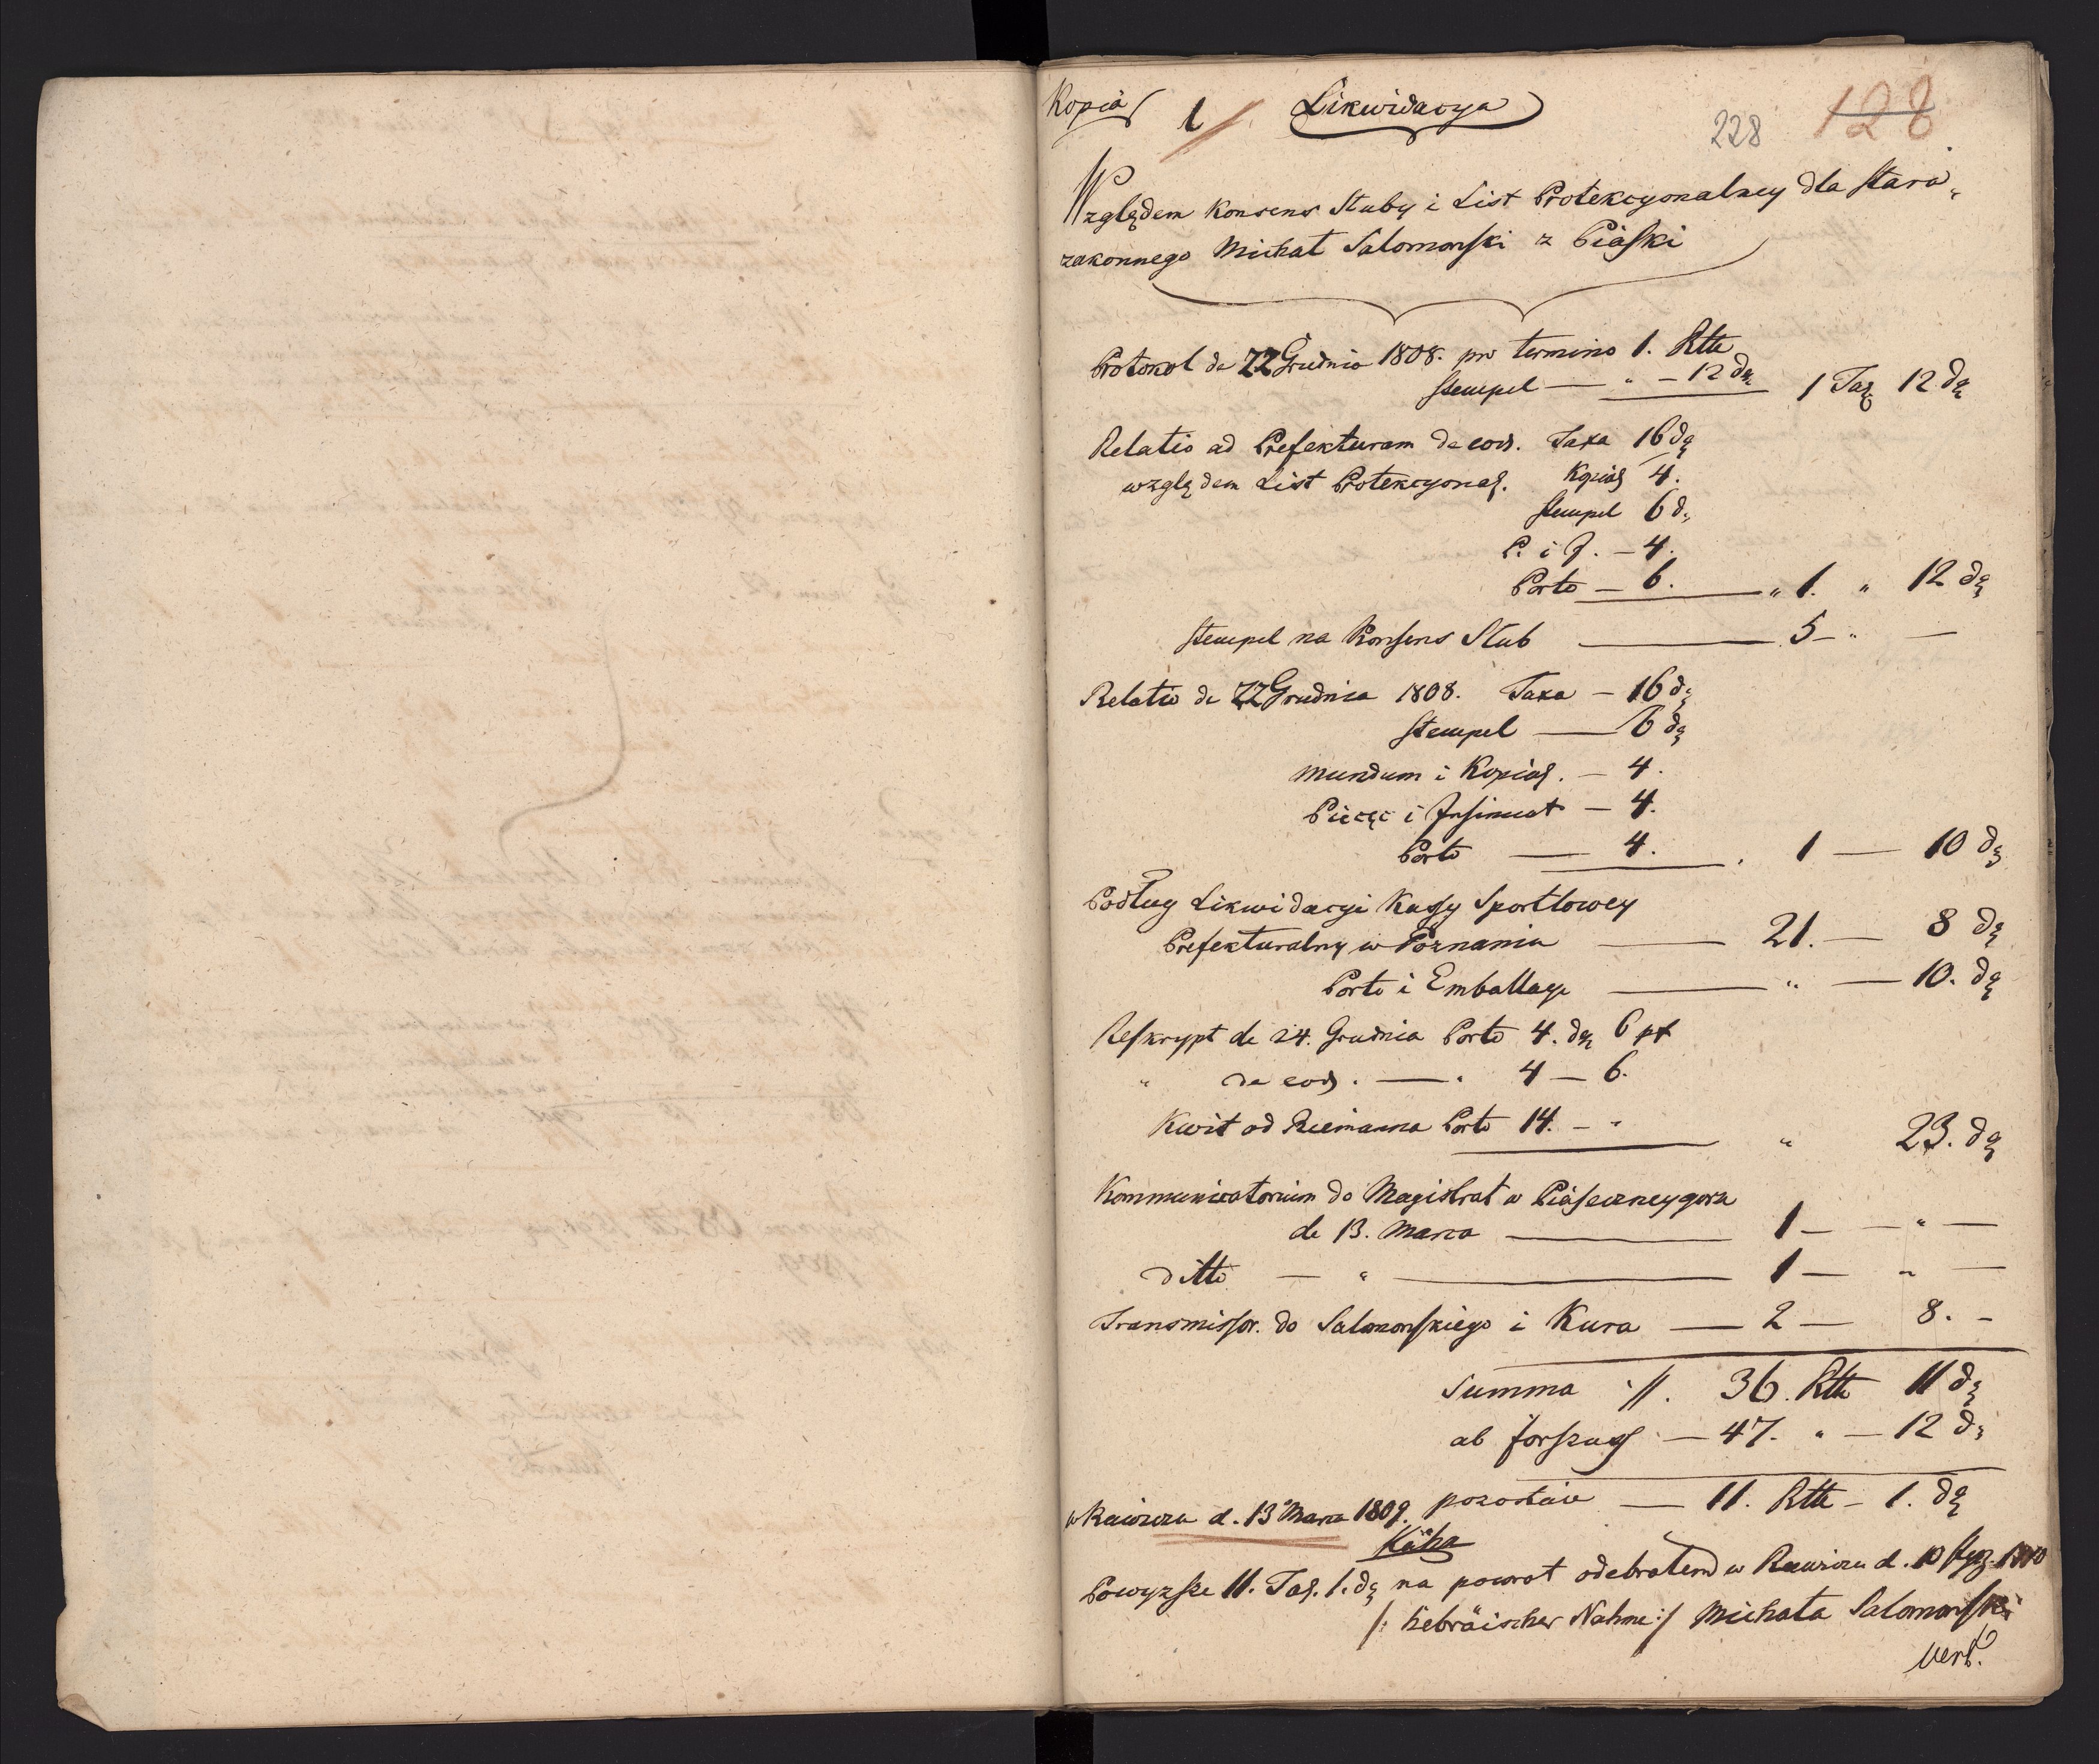 Kopia
1
Likwidacya
228
128
Względem Konsens Sluby i List Protekcyonalney dla Staro-
zakonnego Michał Salomonski z Piaski
Protokol de 22 Grudnia 1808. pro termino 1. Rtlr
Stempel — " — 12 dg 1 Tal. 12 dg
Relatio ad Prefekturam de eod. Taxa 16 dg
względem List Protekcyonal. Kopial 4.
Stempel 6 d.
P. i J. — 4.
Porto — 6. " 1. " 12 dg
Stempel na Konsens Slub — 5 — " —
Relatio de 22 Grudnia 1808. Taxa — 16 dg
Stempel — 6 dg
Mundum i Kopial. — 4.
Pieczęc i Insinuat — 4.
Porto — 4. 1 — 10 dg
Podług Likwidacyi Kassy Sportlowey
Prefekturalny w Poznaniu — 21. — 8 dg
Porto i Emballage — " — 10. dg
Reskrypt de 24. Grudnia Porto 4. dg 6 pf
" de eod. — . 4 — 6.
Kwit od Riemanna Porto 14. — " " 23. dg
Kommunicatorium do Magistrat w Piaseczneygora
de 13. Marca — 1 — — " —
ditto — " — 1 — " —
Transmissor. do Salomonskiego i Kura — 2 — 8. —
Summa 36. Rtlr 11 dg
ab forszus — 47. " — 12 d.
pozostaie — 11. Rtlr — 1. dg
w Rawiczu d. 13 Marca 1809.
Kuba
Powyzsze 11. Tal. 1. dg na powrot odebralem w Rawiczu d. 10 Stycz. 1810
/: hebräischer Nahme :/ Michała Salomonski